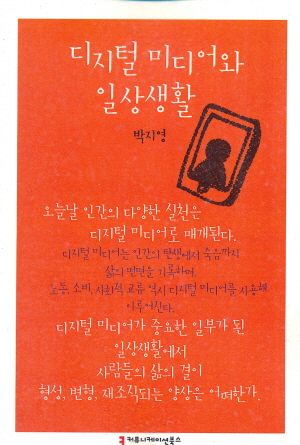 디지털 미디어와
일상생활
박지영
오늘날 인간의 다양한 실천은
디지털 미디어로 매개된다.
디지털 미디어는 인간의 탄생에서 죽음까지
삶의 면면을 기록하며,
노동, 소비, 사회적 교류 역시 디지털 미디어를 사용해
이루어진다.
디지털 미디어가 중요한 일부가 된
일상생활에서
사람들의 삶의 결이
형성, 변형, 재조직되는 양상은 어떠한가.
커뮤니케이션북스